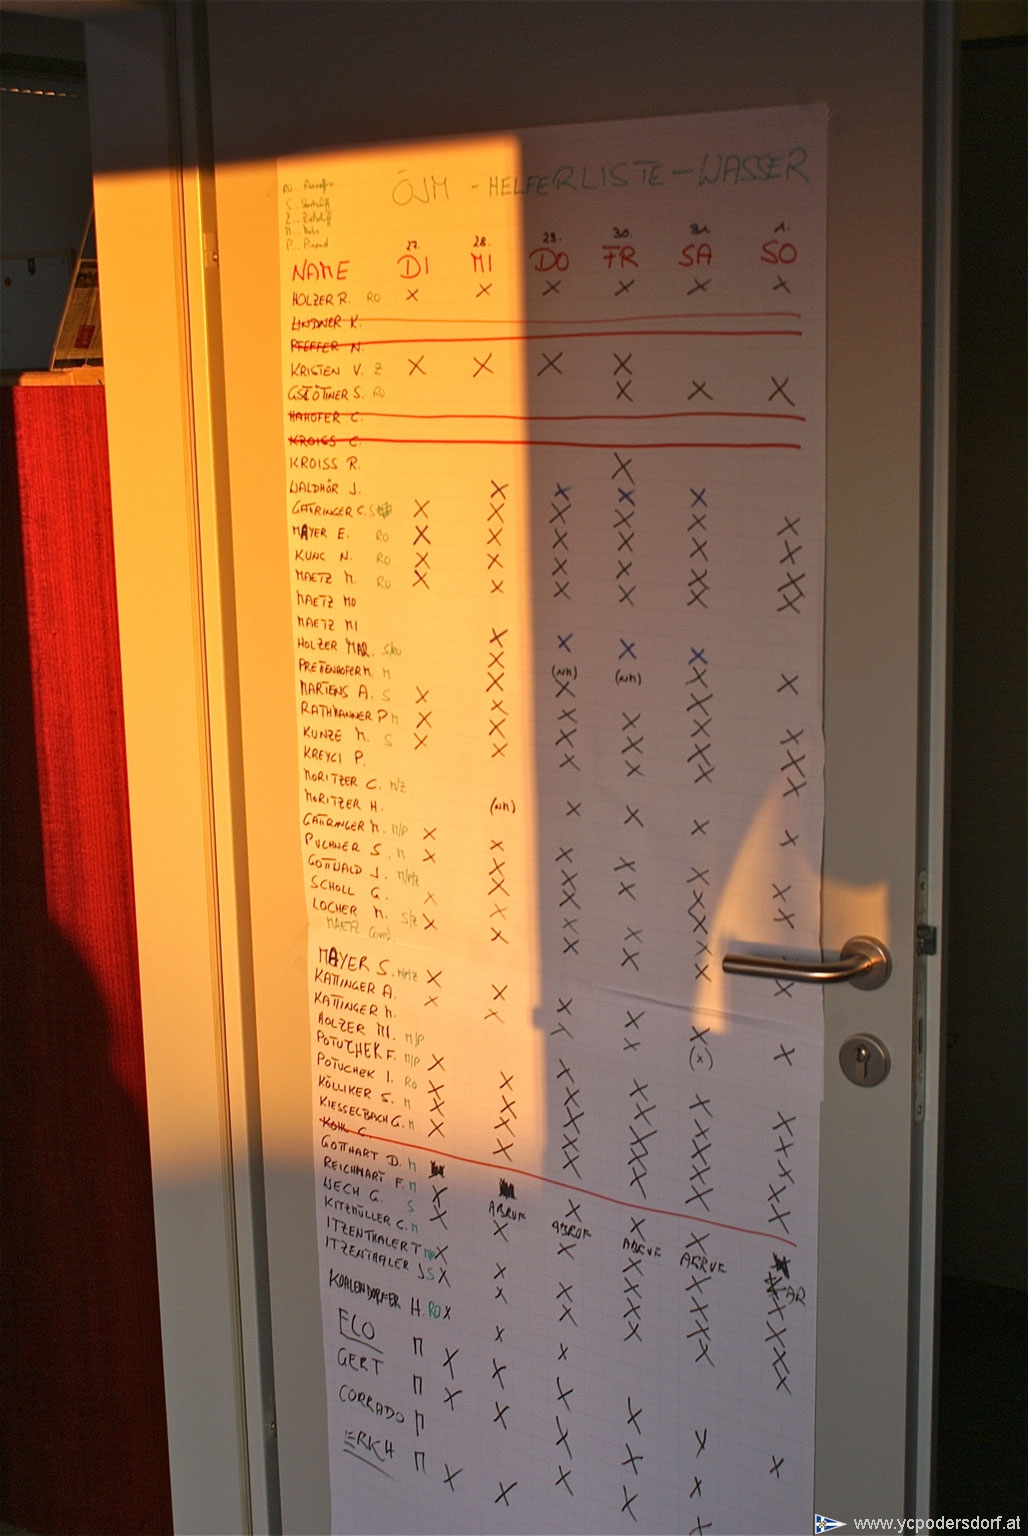 ÖJM - HELFERLISTE - WASSER
S...
Z...
M...
P...
27. 28. 29. 30. 31. 1.
NAME DI MI DO FR SA SO
HOLZER R. RO X X X X X X
LINDNER K.
PFEFFER N.
KRISTEN V. Z X X X X
GSTÖTTNER S. RO X X X
HAHOFER C.
KROISS C.
KROISS R. X
WALDHÖR J. X X X X
GATTRINGER C. S X X X X X X
MAYER E. RO X X X X X X
KUNC N. RO X X X X X X
MAETZ M. RO X X X X X X
MAETZ MO
MAETZ MI
HOLZER MAR. X X X X
PRETTENHOFER M. M X (NM) (NM) X X
MARTENS A. S X X X X
RATHMANNER P M X X X X X X
KUNZE M. S X X X X X X
KREYCI P.
MORITZER C. M/Z
MORITZER H. (NM) X X X X
GATTRINGER M. M/P X X
PUCHNER S. M X X X X X X
GOTTWALD J. M/P/Z X X X X X
SCHOLL G. X X X
LOCHER M. S/Z X X X X X X
MAETZ
MAYER S. M/P/Z X X X X X X
KATTINGER A. X X X X (X)
KATTINGER M.
HOLZER MI. M/P
POTUCHEK F. M/P X X X X X X
POTUCHEK I. RO X X X X X X
KÖLLIKER S. M X X X X X X
KIESSELBACH G. M X X X X X X
KOHL C.
GOTTHART D. M X X X
REICHMART F. M X ABRUF ABRUF ABRUF ABRUF AR
WECH G. S X X X X X X
KITZMÜLLER C. M
ITZENTHALER T X X X X X X
ITZENTHALER J S X X X X X X
KOHLENDORFER H. RO X X X
FLO M X X X X X X
GERT M X X X X X
CORRADO M
ERICH M X X X X X
www.ycpodersdorf.at